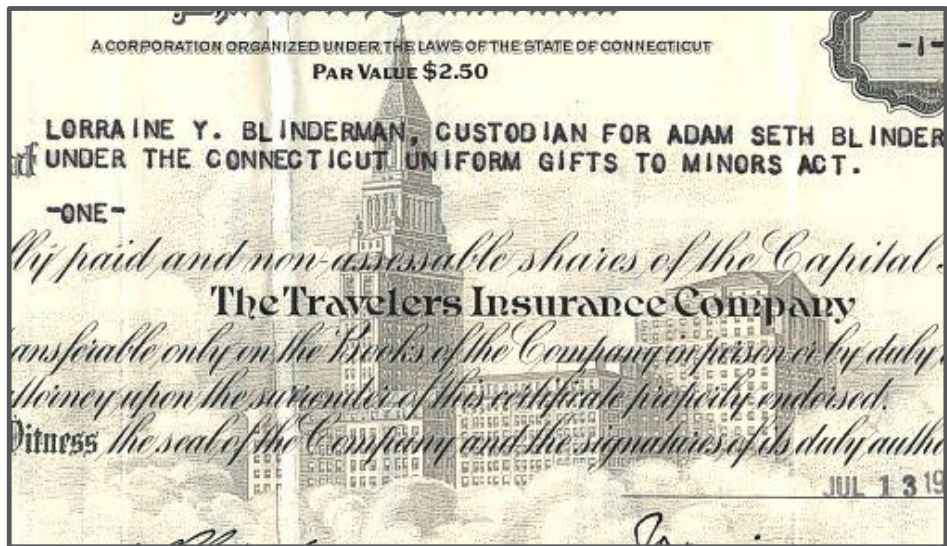 A CORPORATION ORGANIZED UNDER THE LAWS OF THE STATE OF CONNECTICUT
PAR VALUE $2.50
-1-
LORRAINE Y. BLINDERMAN, CUSTODIAN FOR ADAM SETH BLINDER
UNDER THE CONNECTICUT UNIFORM GIFTS TO MINORS ACT.
-ONE-
lly paid and non-assessable shares of the Capital
The Travelers Insurance Company
ansferable only on the Books of the Company in person or by duly
ttorney upon the surrender of this certificate properly endorsed.
Witness the seal of the Company and the signatures of its duly autho
JUL 13 19